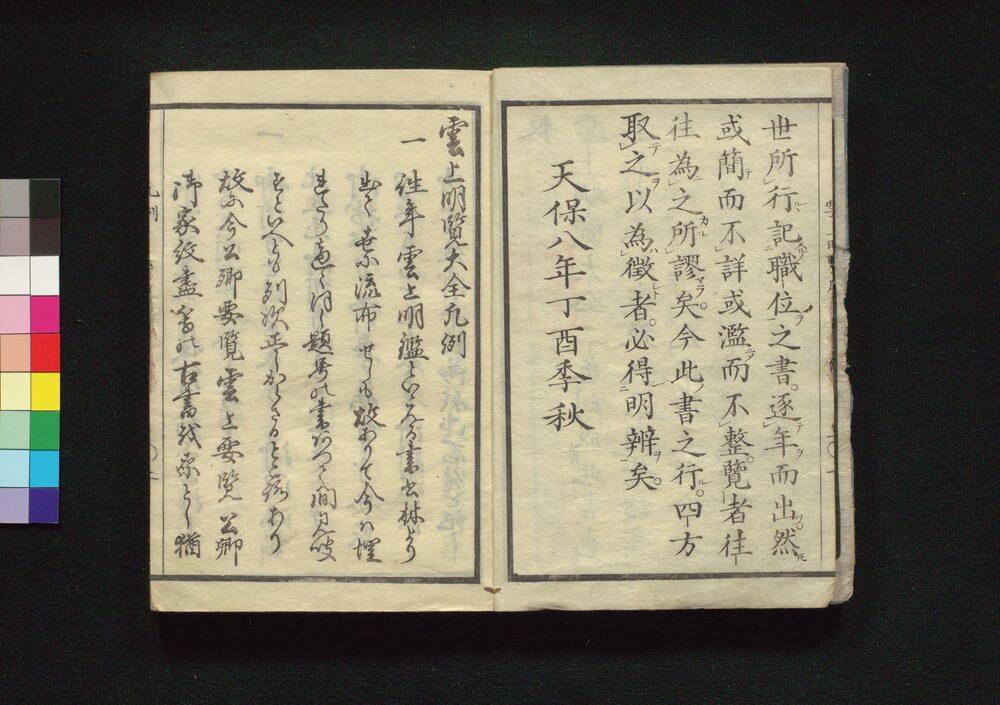 世所行記職位之書。逐年而出然
或簡而不詳或濫而不整覽者往
往為之所謬矣今此書之行。四方
取之以為徵者。必得明辨矣。
天保八年丁酉季秋
雲上明覧大全凡例
一 往年雲上明鑑といへる書書林より
出て世に流布せしも故ありて今ハ埋
題号の書
といへとも列次正しからさるところあり
故に今公卿要覧雲上要覧公卿
御家紋盡等の古書を原とし猶